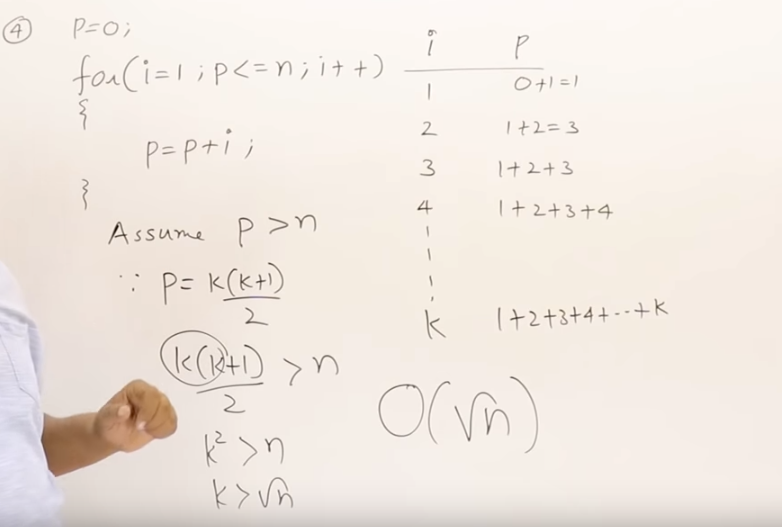 ④ P=0;
for(i=1; p<=n; i++)
{
p=p+i;
}
Assume p>n
∵ P=k(k+1)/2
k(k+1)/2 > n
k²>n
k>√n
i P
1 0+1=1
2 1+2=3
3 1+2+3
4 1+2+3+4
k 1+2+3+4+---+k
O(√n)